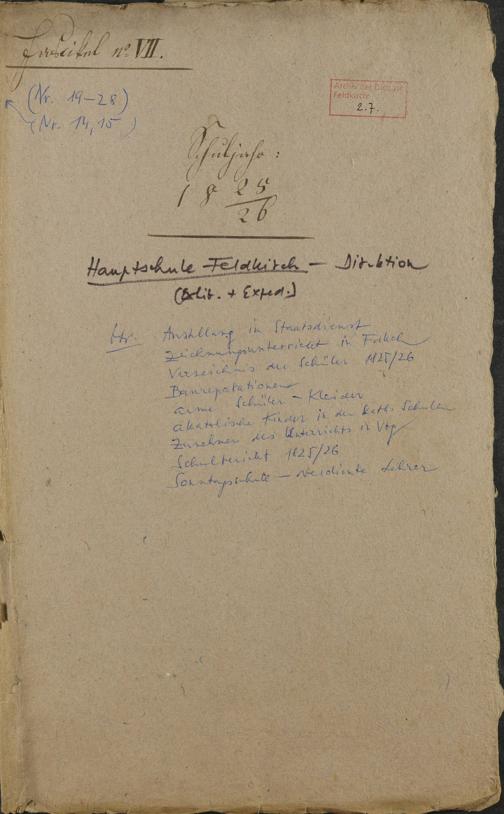 Faszikel nº VII.
(Nr. 19–28)
(Nr. 14, 15)
Archiv der Diözese
Feldkirch
2.7.
Schuljahr:
18 25
26
Hauptschule Feldkirch – Direktion
(Exped.)
btr. Anstellung in Staatsdienst
Zeichnungsunterricht in Fdkch
Verzeichnis der Schüler 1825/26
Baureparationen
arme Schüler – Kleider
akatolische Kinder in den kath. Schulen
Zunehmen des Unterrichts in Vbg
Schulbericht 1825/26
Sonntagsschule – verdiente Lehrer